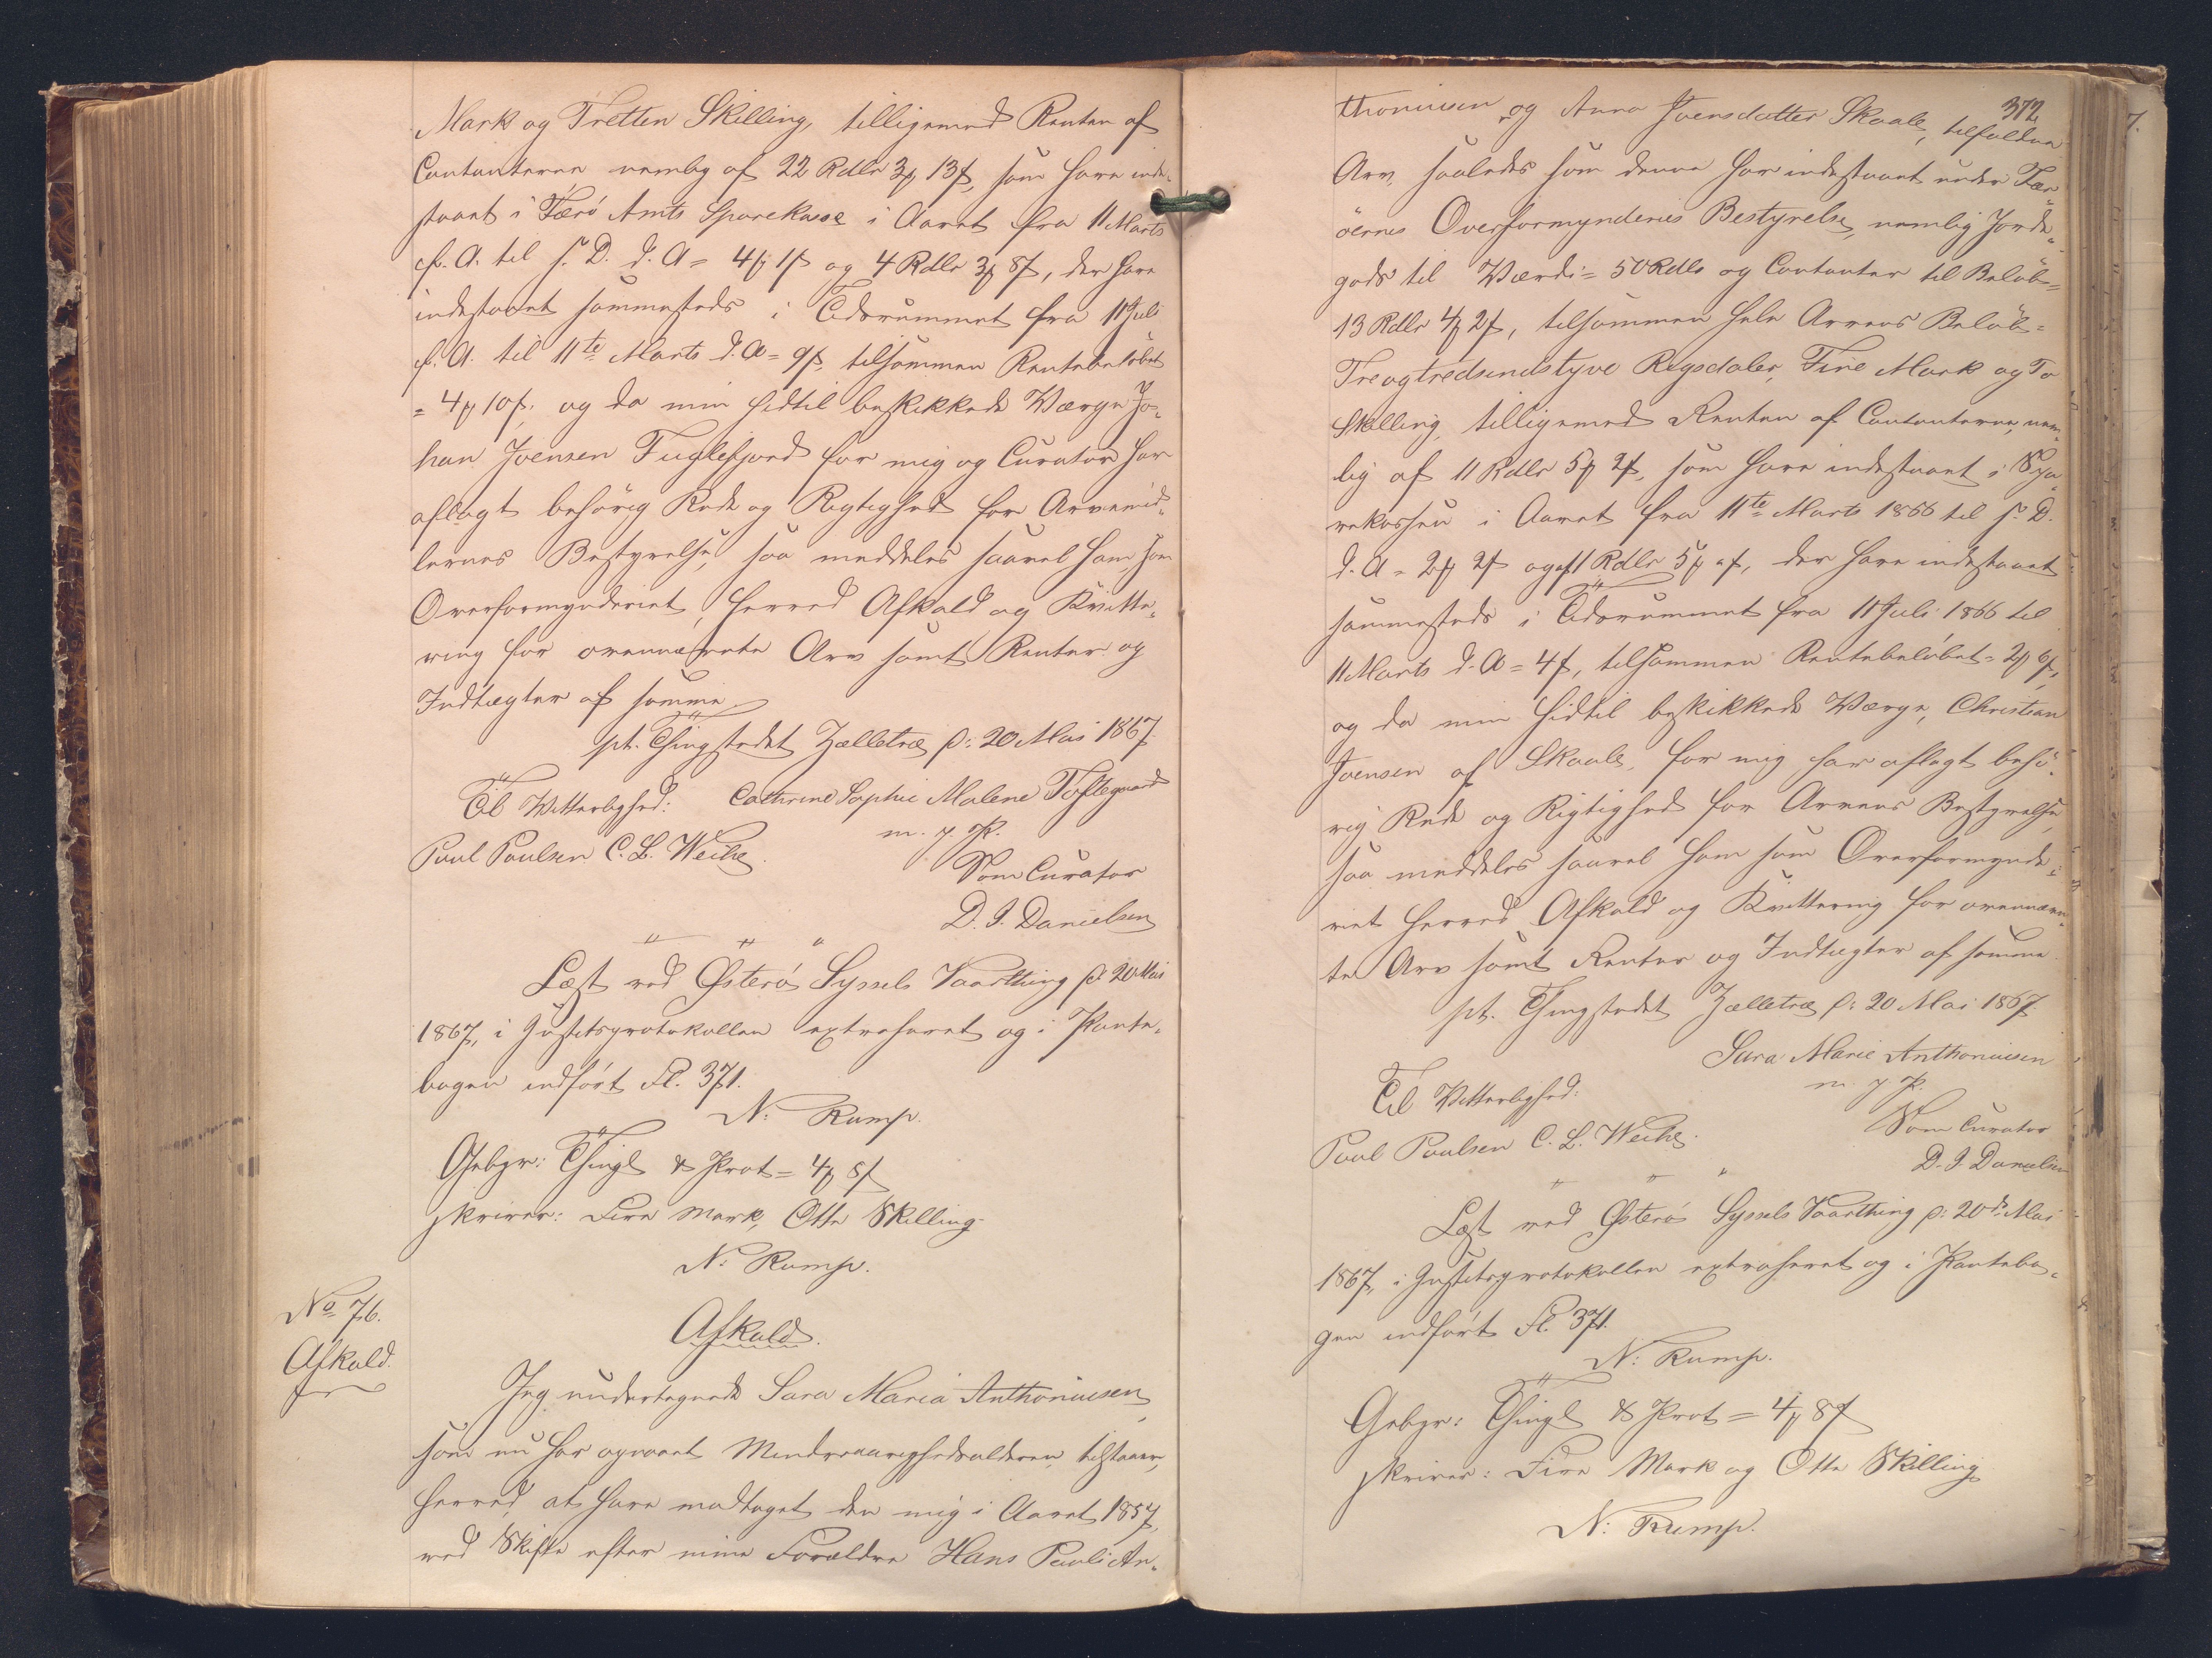 Mark og Tretten Skilling, tilligemed Renten af
Contanterne nemlig af 22 Rdlr 3 ꝟ 13 ß, som have inde-
staaet i Færö Amts Sparekasse i Aaret fra 11 Marts
f. A. til s. D. d. A = 4 ꝟ 1 ß og 4 Rdlr 3 ꝟ 8 ß, der have
indestaaet sammesteds i Tidsrummet fra 11 Juli
f. A. til 11te Marts d. A = 9 ß, tilsammen Rentebelöbet
= 4 ꝟ 10 ß, og da min hidtil beskikkede Værge Jo-
han Joensen Fuglefjord for mig og Curator har
aflagt behörig Rede og Rigtighed for Arvemid-
lernes Bestyrelse, saa meddeles saavel ham, som
Overformynderiet, herved Afkald og Kvitte-
ring for ovennævnte Arv samt Renter og
Indtægter af samme.
pt. Thingstedet Zelletræ p: 20 Mai 1867.
Til Vitterlighed: Cathrine Sophie Malene Toftegaard
m. f. P.
Poul Poulsen C. L. Weihe.
Som Curator
D. J. Danielsen
Læst ved Østerö Syssels Vaarthing p: 20 Mai
1867, i Justitsprotokollen extraheret og i Pante-
bogen indfört Fl. 371.
N: Rump.
Gebyr: Thingl & Prot = 4 ꝟ 8 ß
skriver: Fire Mark, Otte Skilling
N: Rump.
No 76.
Afkald.
Afkald.
Jeg undertegnede Sara Maria Anthoniusen,
som nu har opnaaet Mindreaarighedsalderen, tilstaaer,
herved, at have modtaget den mig i Aaret 1857,
ved Skifte efter mine Forældre Hans Pauli An-
372
thoniusen og Anna Joensdatter Skaale, tilfaldne
Arv, saaledes som denne har indestaaet under Fær-
öernes Overformynderies Bestyrelse, nemlig Jorde-
gods til Værdi = 50 Rdlr og Contanter til Belöb =
13 Rdlr 4 ꝟ 2 ß, tilsammen hele Arvens Belöb =
Treogtredsindstyve Rigsdaler, Fire Mark og To
Skilling, tilligemed Renten af Contanterne, nem-
lig af 11 Rdlr 5 ꝟ 2 ß, som have indestaaet i Spa-
rekassen i Aaret fra 11te Marts 1866 til s. D.
d. A = 2 ꝟ 2 ß og af 1 Rdlr 5 ꝟ " ß, der have indestaaet
sammesteds i Tidsrummet fra 11 Juli 1866 til
11 Marts d. A = 4 ß, tilsammen Rentebelöbet = 2 ꝟ 6 ß,
og da min hidtil beskikkede Værge, Christian
Joensen af Skaale, for mig har aflagt behö-
rig Rede og Rigtighed for Arvens Bestyrelse,
saa meddeles saavel ham som Overformynde-
riet herved Afkald og Kvittering for ovennævn-
te Arv samt Renter og Indtægter af samme.
pt. Thingstedet Zelletræ p: 20 Mai 1867.
Sara Marie Anthoniusen
m. f. P.
Til Vitterlighed:
Poul Poulsen C. L. Weihe.
Som Curator
D. J. Danielsen
Læst ved Østerö Syssels Vaarthing p: 20de Mai
1867, i Justitsprotokollen extraheret og i Pantebo-
gen indfört Fl. 371.
N: Rump.
Gebyr: Thingl & Prot = 4 ꝟ 8 ß
skriver: Fire Mark og Otte Skilling
N: Rump.
7.